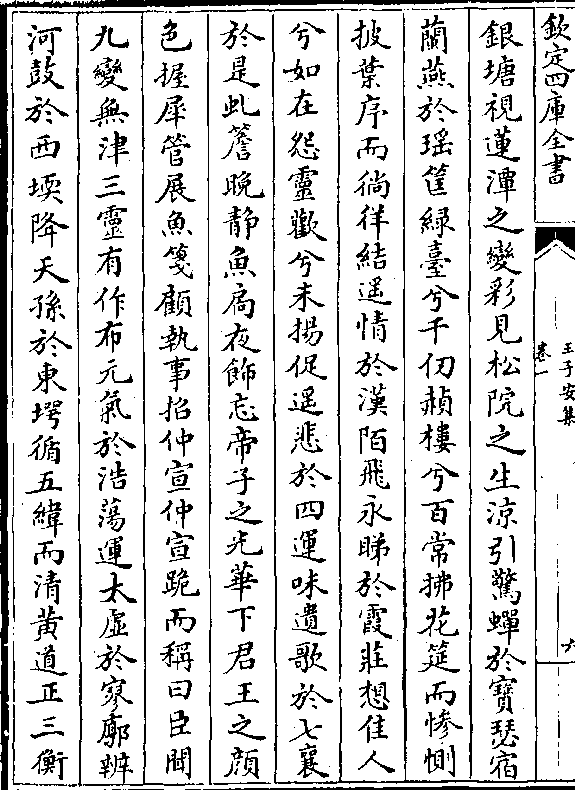 欽定四庫全書
王子安集
卷一
六
銀塘視蓮潭之變彩見松院之生涼引驚蟬於寶瑟宿
蘭燕於瑶筐緑臺兮千仞赬樓兮百常拂花筵而慘惻
披葉序而徜徉結遥情於漢陌飛永睇於霞莊想佳人
兮如在怨靈歡兮未揚促遥悲於四運味遺歌於七襄
於是虬簷晩静魚扄夜飾忘帝子之光華下君王之顔
色握犀管展魚箋顧執事招仲宣仲宣跪而稱曰臣聞
九變無津三靈有作布元氣於浩蕩運太虚於寥廓辨
河鼓於西壖降天孫於東堮循五緯而清黄道正三衡